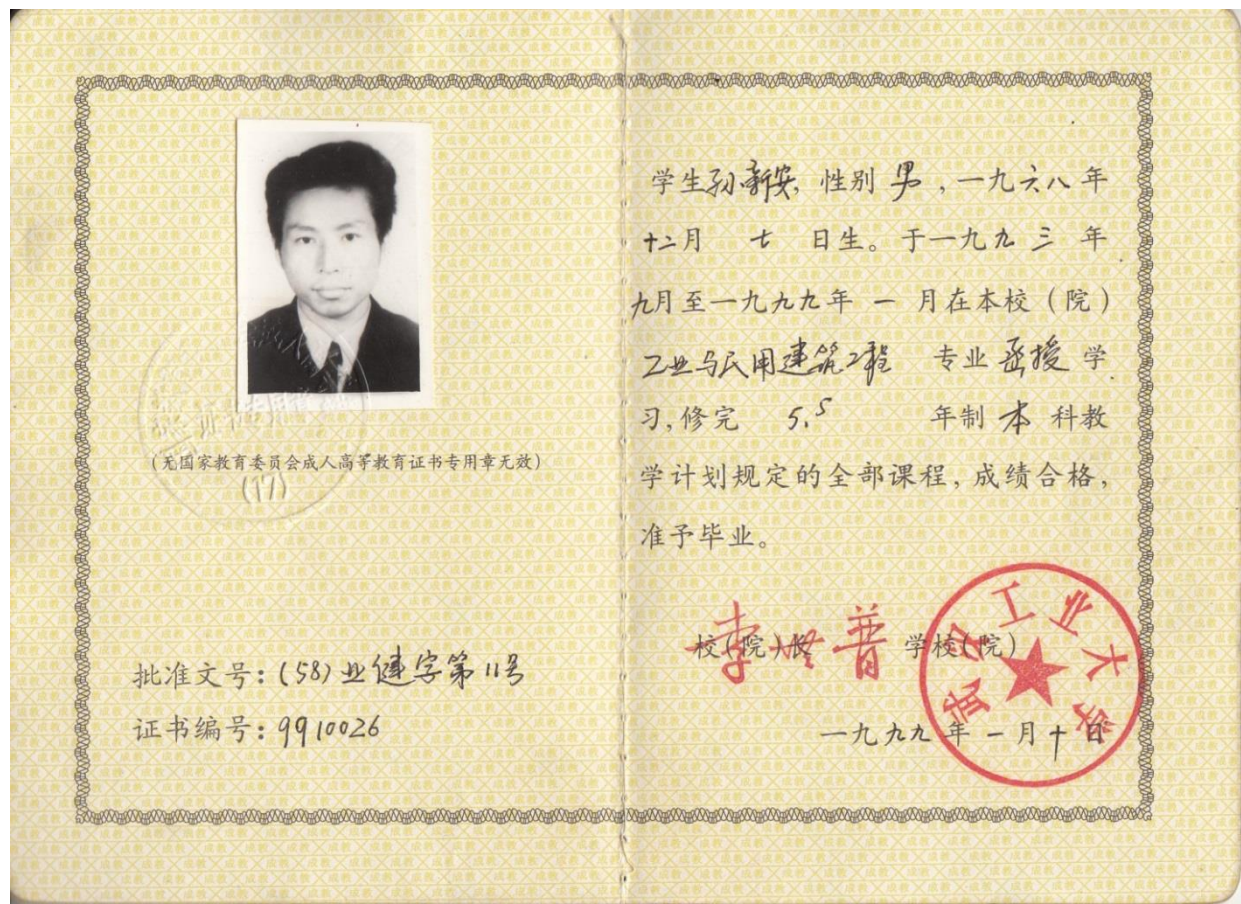 (无国家教育委员会成人高等教育证书专用章无效)
(17)
批准文号：(58)业健字第11号
证书编号：9910026
学生孙新安, 性别 男 , 一九六八年
十二月 七 日生。于一九九三 年
九月至一九九九年 一 月在本校（院）
工业与民用建筑工程 专业 函授 学
习, 修完 5.5 年制 本 科教
学计划规定的全部课程, 成绩合格,
准予毕业。
校（院）长 学校（院）
武汉工业大学
一九九九年一月十日